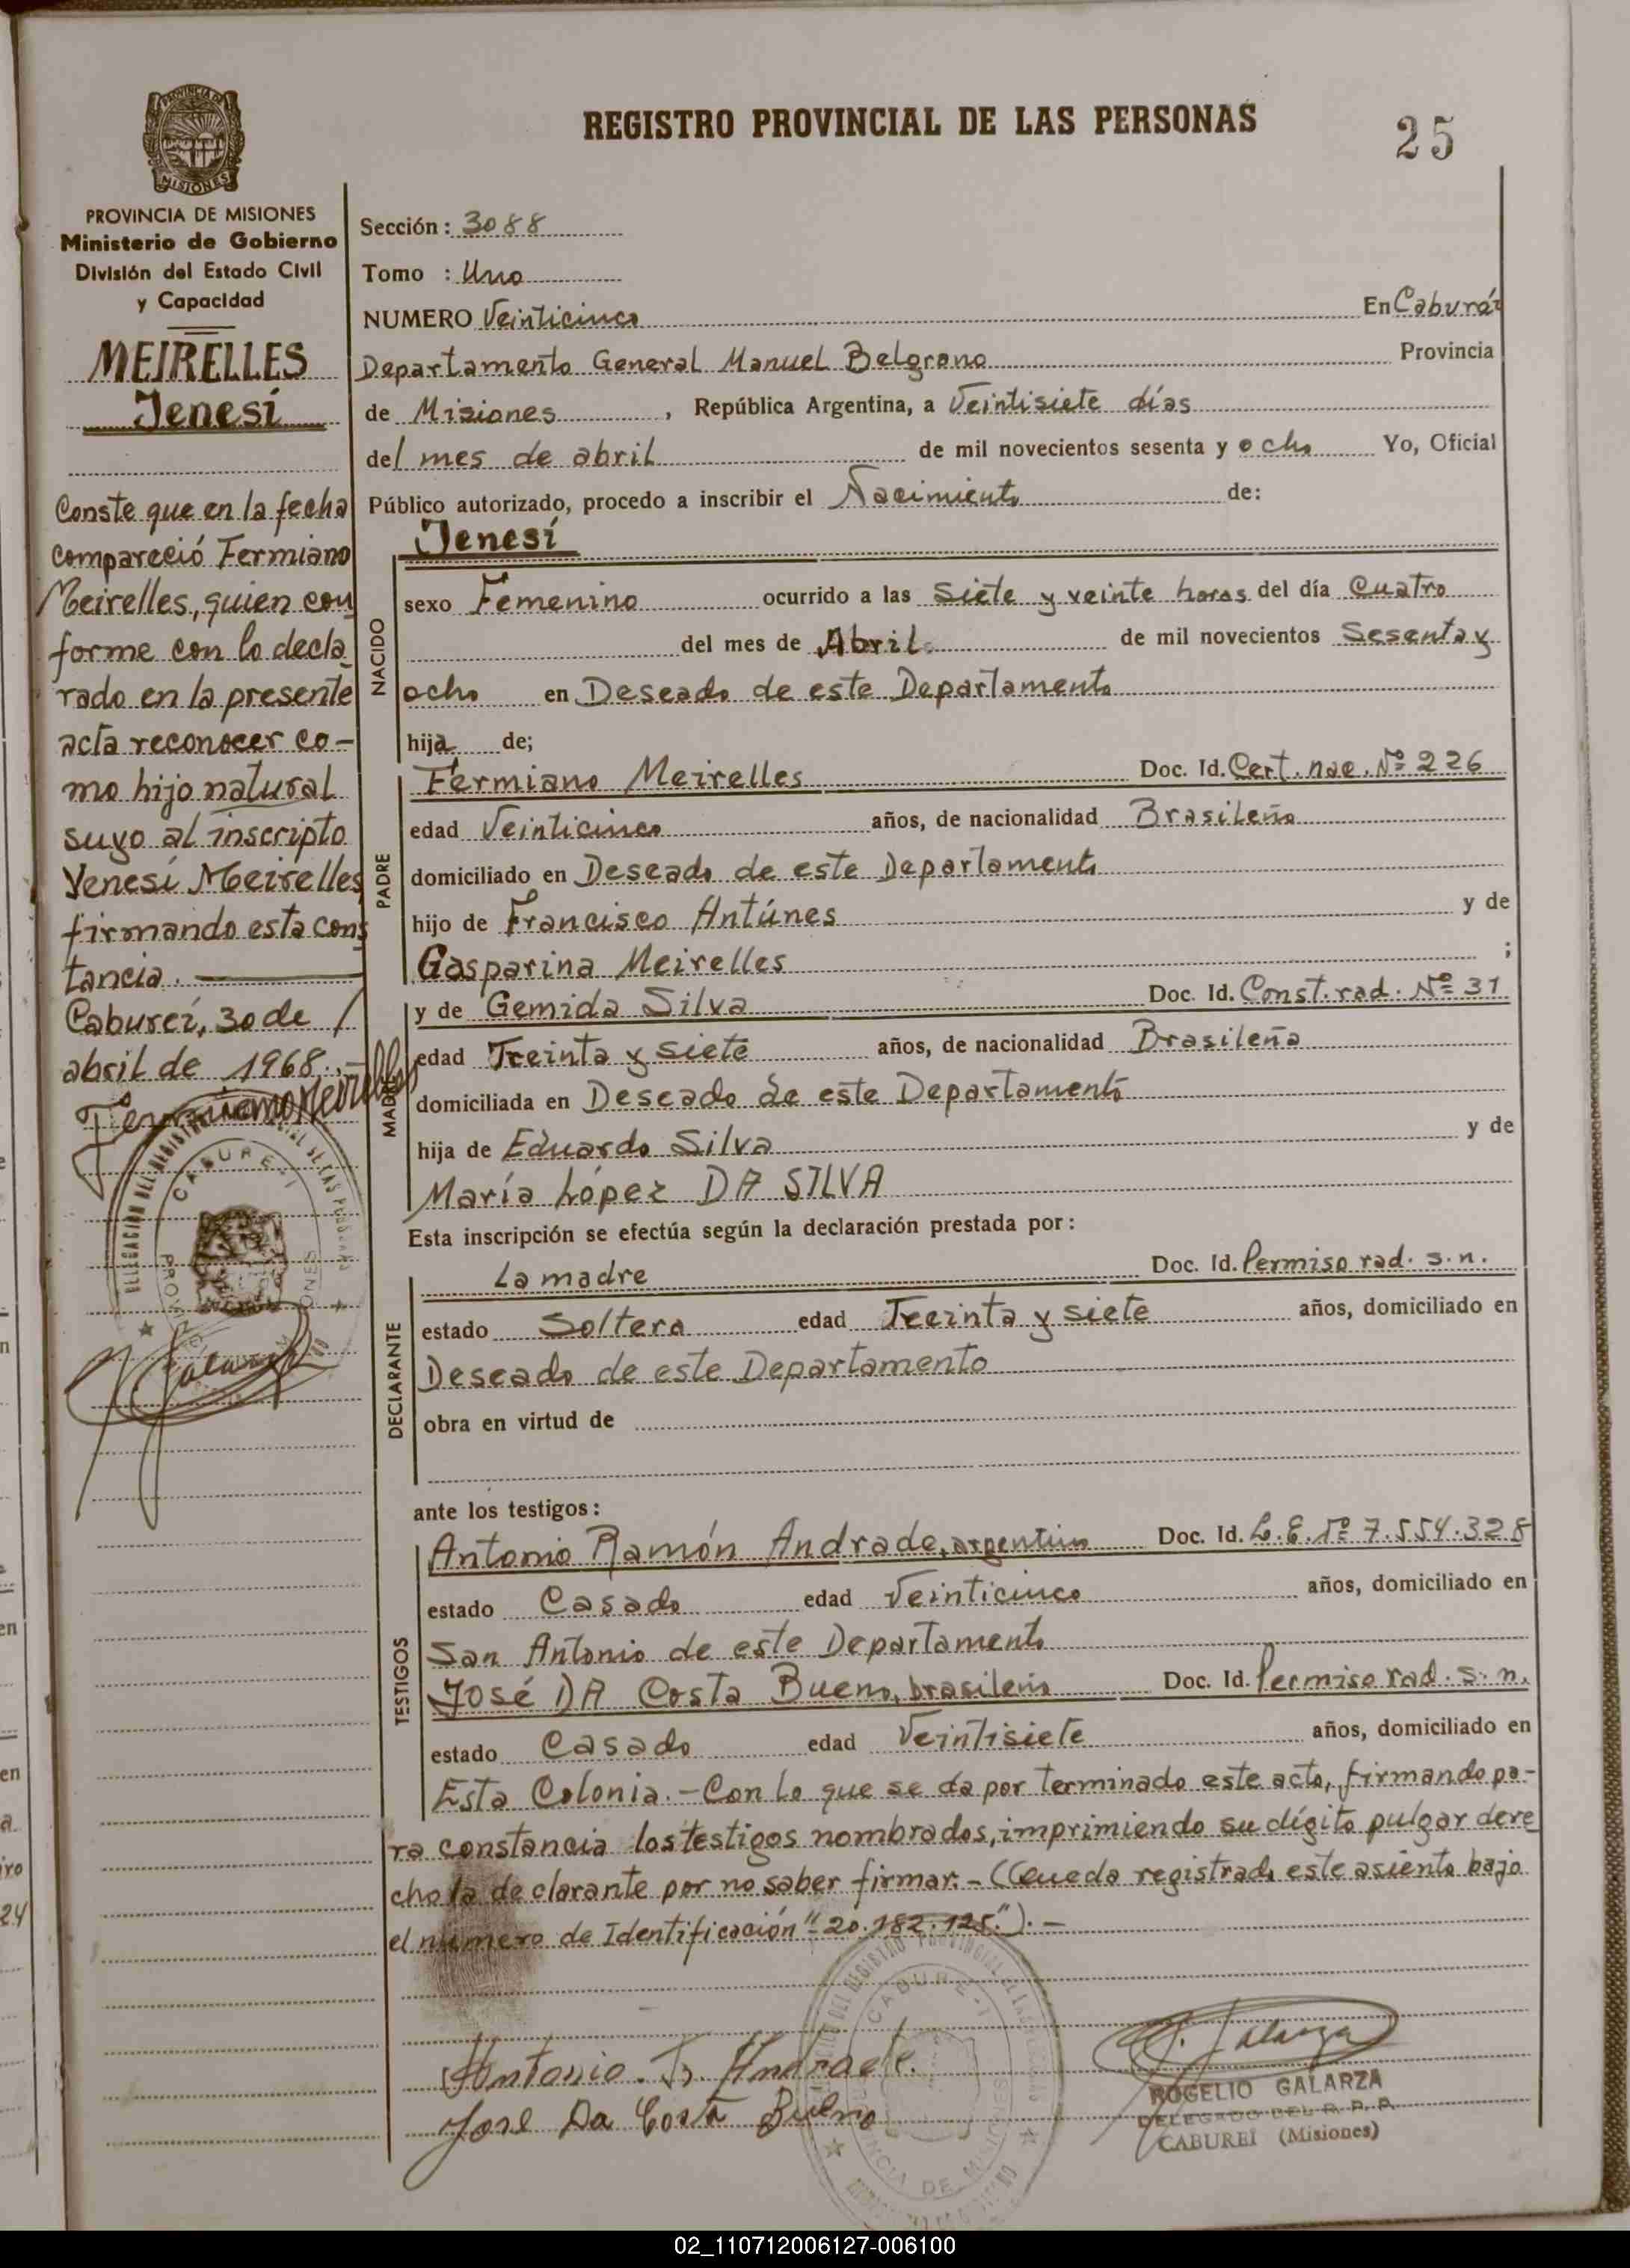 REGISTRO PROVINCIAL DE LAS PERSONAS
25
PROVINCIA DE MISIONES
Ministerio de Gobierno
División del Estado Civil
y Capacidad
MEIRELLES
Jenesí
Conste que en la fecha
compareció Fermiano
Meirelles, quien con
forme con lo decla
rado en la presente
acta reconocer co-
mo hijo natural
suyo al inscripto
Yenesí Meirelles
firmando esta cons
tancia.
Cabureí, 30 de /
abril de 1968.-
Fermiano Meirelles
CABURE-I
Sección: 3088
Tomo : Uno
NUMERO Veinticinco En Cabureí
Departamento General Manuel Belgrano Provincia
de Misiones, República Argentina, a Veintisiete días
del mes de abril de mil novecientos sesenta y ocho Yo, Oficial
Público autorizado, procedo a inscribir el Nacimiento de:
Jenesí
NACIDO
sexo Femenino ocurrido a las Siete y veinte horas del día Cuatro
del mes de Abril de mil novecientos Sesenta y
ocho en Deseado de este Departamento
hija de;
PADRE
Fermiano Meirelles Doc. Id. Cert. nac. Nº 226
edad Veinticinco años, de nacionalidad Brasileño
domiciliado en Deseado de este Departamento
hijo de Francisco Antúnes y de
Gasparina Meirelles ;
MADRE
y de Gemida Silva Doc. Id. Const. rad. Nº 31
edad Treinta y siete años, de nacionalidad Brasileña
domiciliada en Deseado de este Departamento
hija de Eduardo Silva y de
María López DA SILVA
Esta inscripción se efectúa según la declaración prestada por:
DECLARANTE
La madre Doc. Id. Permiso rad. s.n.
estado Soltera edad Treinta y siete años, domiciliado en
Deseado de este Departamento
obra en virtud de
ante los testigos:
TESTIGOS
Antonio Ramón Andrade, argentino Doc. Id. L.E. Nº 7.554.328
estado Casado edad Veinticinco años, domiciliado en
San Antonio de este Departamento
José DA Costa Bueno, brasileño Doc. Id. Permiso rad. s.n.
estado Casado edad Veintisiete años, domiciliado en
Esta Colonia.-Con lo que se da por terminado este acto, firmando pa-
ra constancia los testigos nombrados, imprimiendo su dígito pulgar dere
cho la declarante por no saber firmar.-(Queda registrado este asiento bajo
el número de Identificación "20.182.125").-
Antonio R. Andrade.
Jose Da Costa Bueno
CABURE-I
PROVINCIA DE MISIONES
R. Galarza
ROGELIO GALARZA
DELEGADO DEL R. P. P.
CABUREÍ (Misiones)
02_110712006127-006100